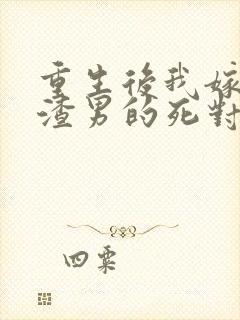 重生後我嫁
渣男的死對
四粟